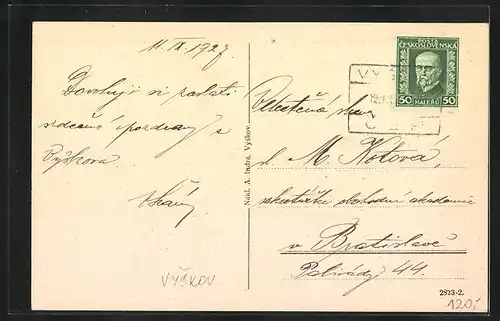 11. IX. 1927
Dovoluji si zaslati
srdečné pozdravy z
Vyškova.
POŠTA
ČESKOSLOVENSKÁ
50 HALÉŘŮ 50
VY
Nákl. A. Indra, Vyškov.
Vážená slečna
sl. M. Kotová,
obchodní akademie
v Bratislavě
Palisády 44.
VYŠKOV
2813-2.
120,-